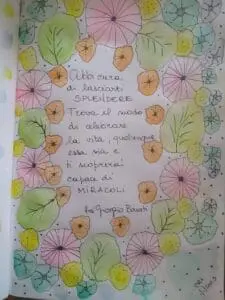 Abbi cura
di lasciarti
SPLENDERE
Trova il modo
di celebrare
la vita, qualunque
essa sia e
ti scoprirai
capace di
MIRACOLI